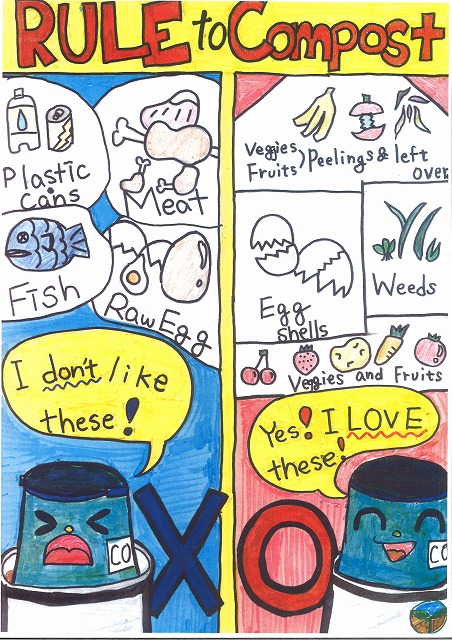 RULE to Compost
Plastic
cans
Meat
Fish
Raw Egg
I don't like
these!
X
CO
Veggies
Fruits) Peelings & left
over
Egg
shells
Weeds
Veggies and Fruits
Yes! I LOVE
these!
O
CO